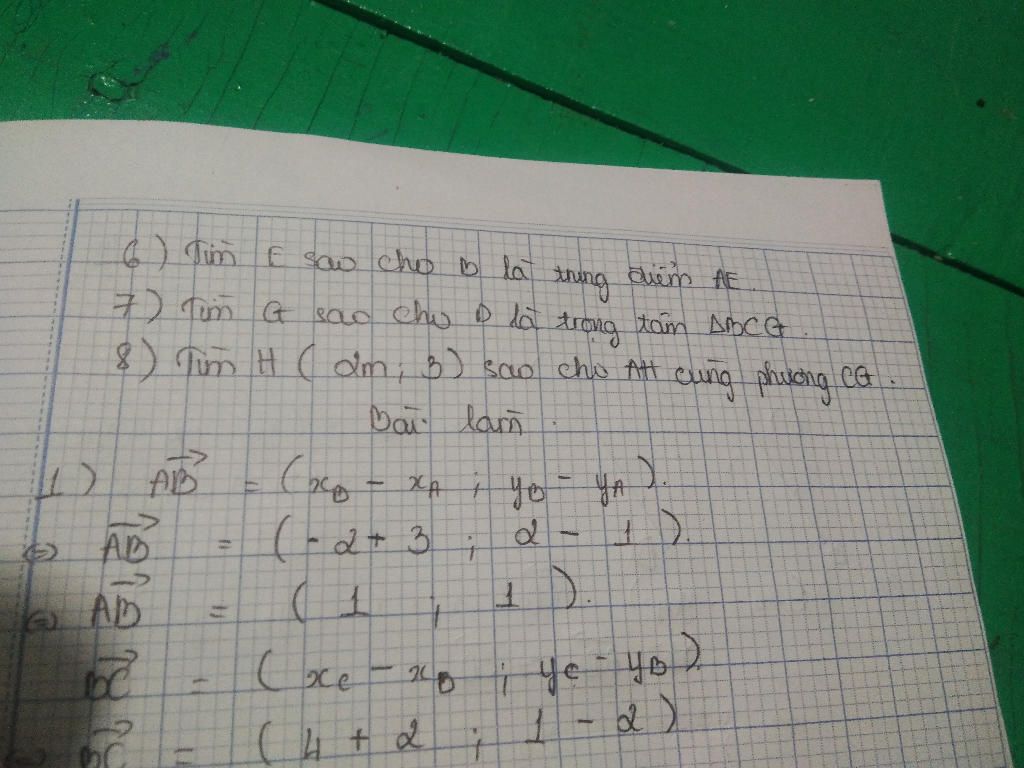 6) Tìm E sao cho B là trung điểm AE.
7) Tìm G sao cho D là trọng tâm ΔBCG.
8) Tìm H (2m; 3) sao cho AH cùng phương CG.
Bài làm.
1) AB→ = (x_B - x_A ; y_B - y_A).
⇔ AB→ = (-2+3 ; 2 - 1).
⇔ AB→ = (1 ; 1).
BC→ = (x_C - x_B ; y_C - y_B).
BC→ = (4 + 2 ; 1 - 2)